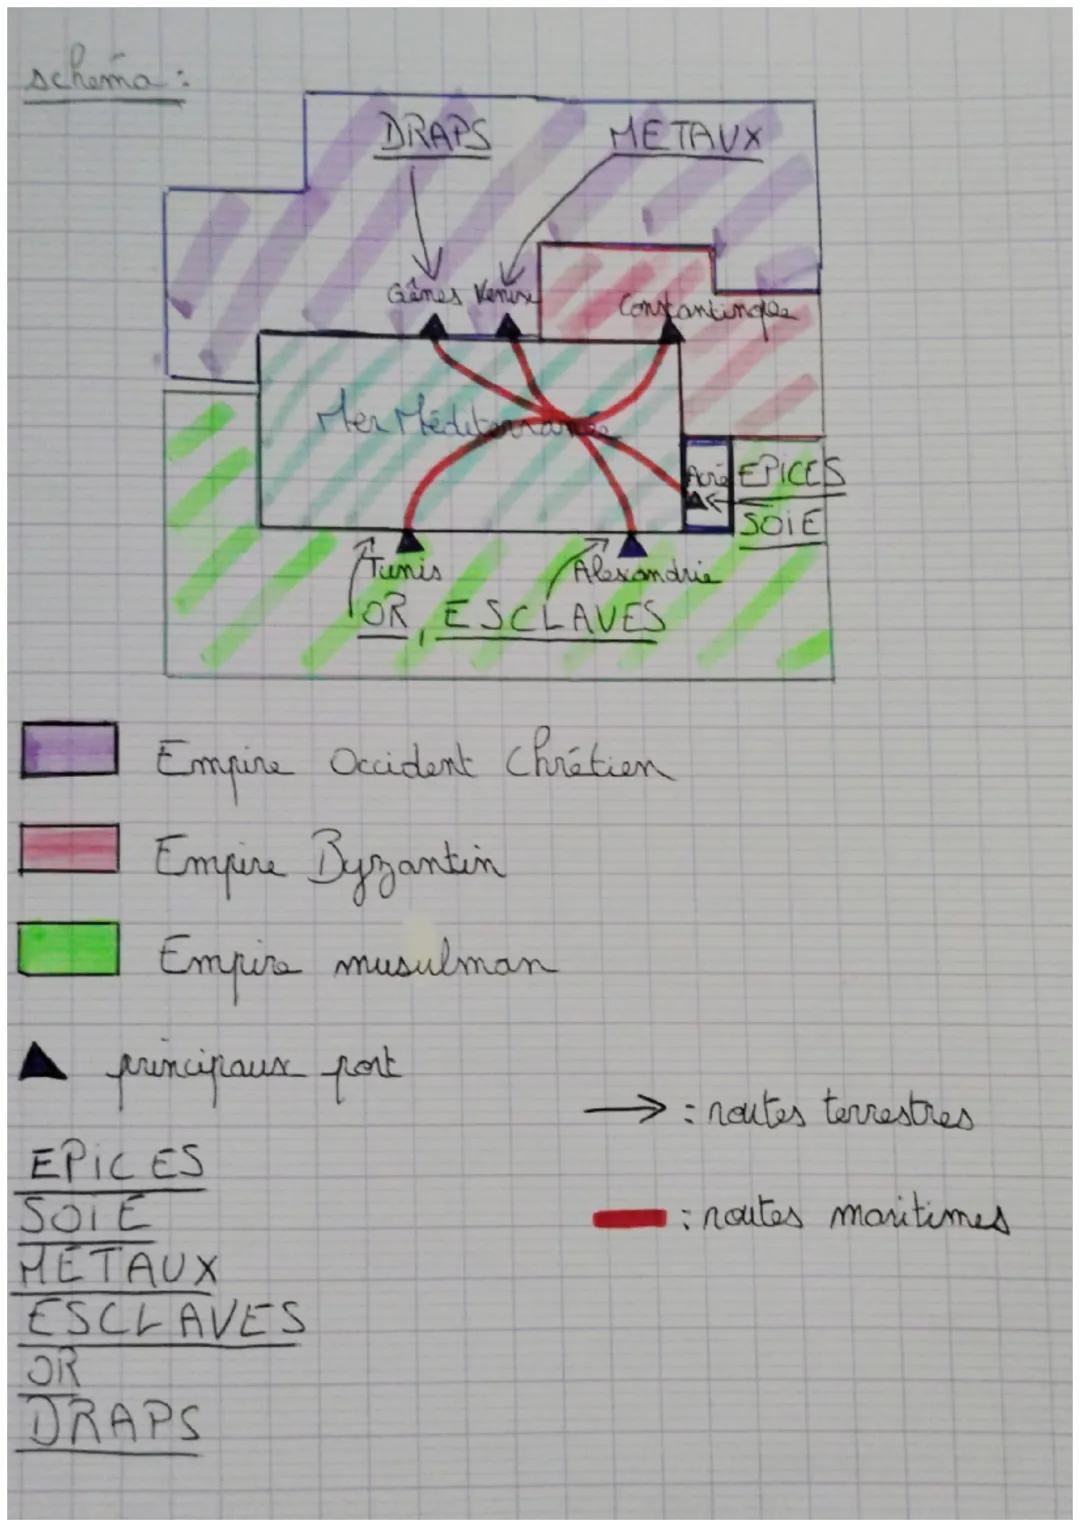 schema :
DRAPS METAUX
Gênes Venise Constantinople
Mer Méditerranée
Acre EPICES
SOIE
Tunis Alexandrie
OR, ESCLAVES
Empire Occident Chrétien
Empire Byzantin
Empire musulman
principaux port
→ : routes terrestres
EPICES
SOIE
: routes maritimes
METAUX
ESCLAVES
OR
DRAPS